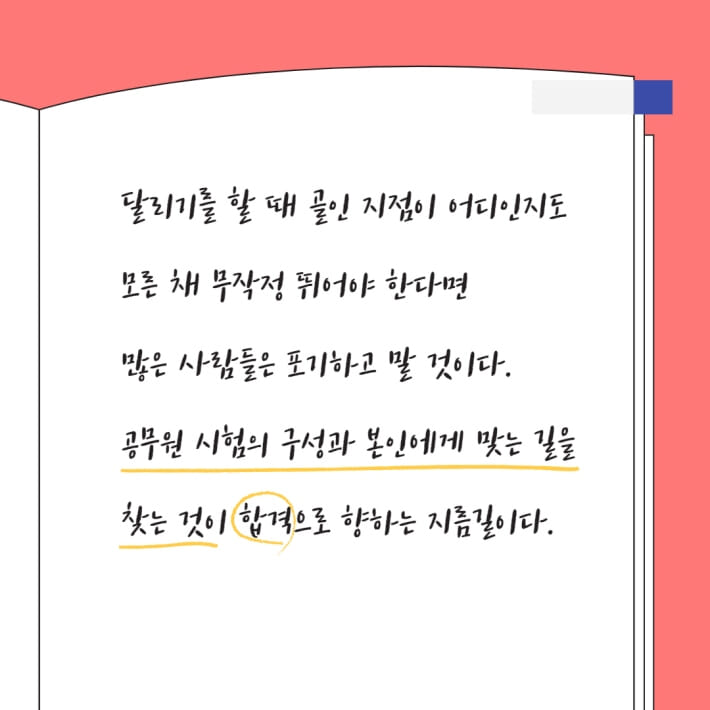 달리기를 할 때 골인 지점이 어디인지도
모른 채 무작정 뛰어야 한다면
많은 사람들은 포기하고 말 것이다.
공무원 시험의 구성과 본인에게 맞는 길을
찾는 것이 합격으로 향하는 지름길이다.